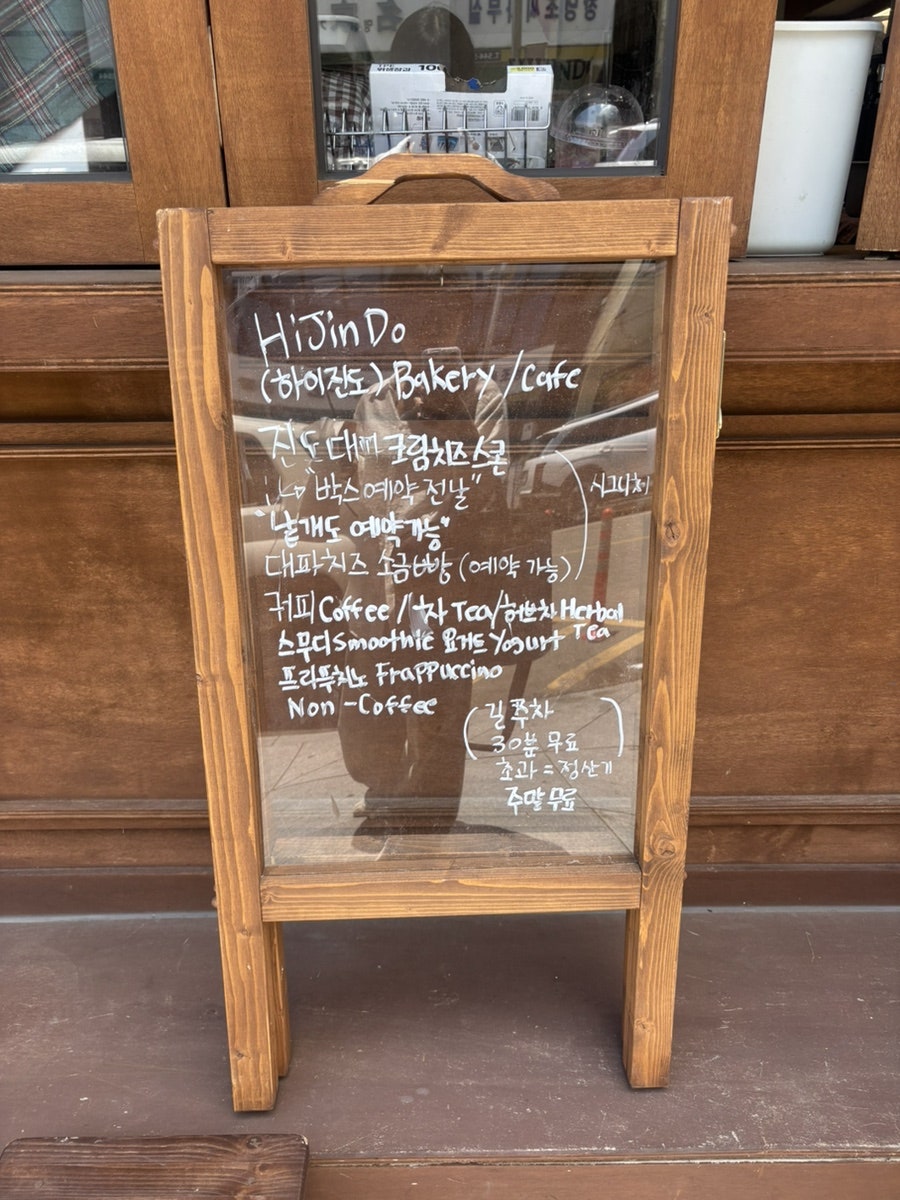 HiJinDo
(하이진도) Bakery / Cafe
진도 대파 크림치즈스콘
"박스예약 전날"
"낱개도 예약가능"
대파치즈 소금빵 (예약 가능)
시그니처
커피 Coffee / 차 Tea / 허브차 Herbal Tea
스무디 Smoothie 요거트 Yogurt
프라푸치노 Frappuccino
Non-Coffee
길 주차
30분 무료
초과 = 정산기
주말 무료